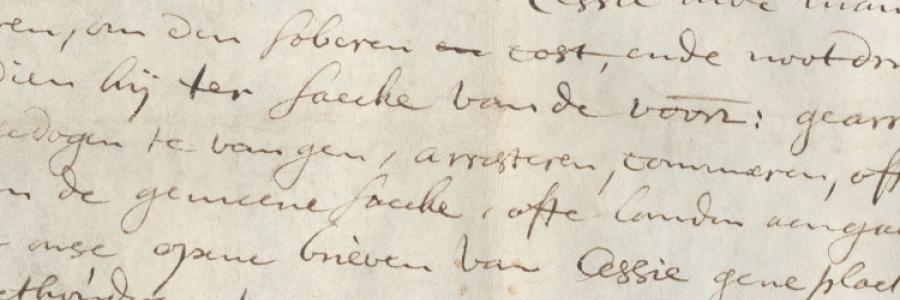 Cessie
om den soberen en cost, ende nootdr
dien hij ter saecke van de voorn: gearr
te vangen, arresteren, commeren, off
de gemeene saecke, ofte landen aenga
onse opene brieven van Cessie gene plaet